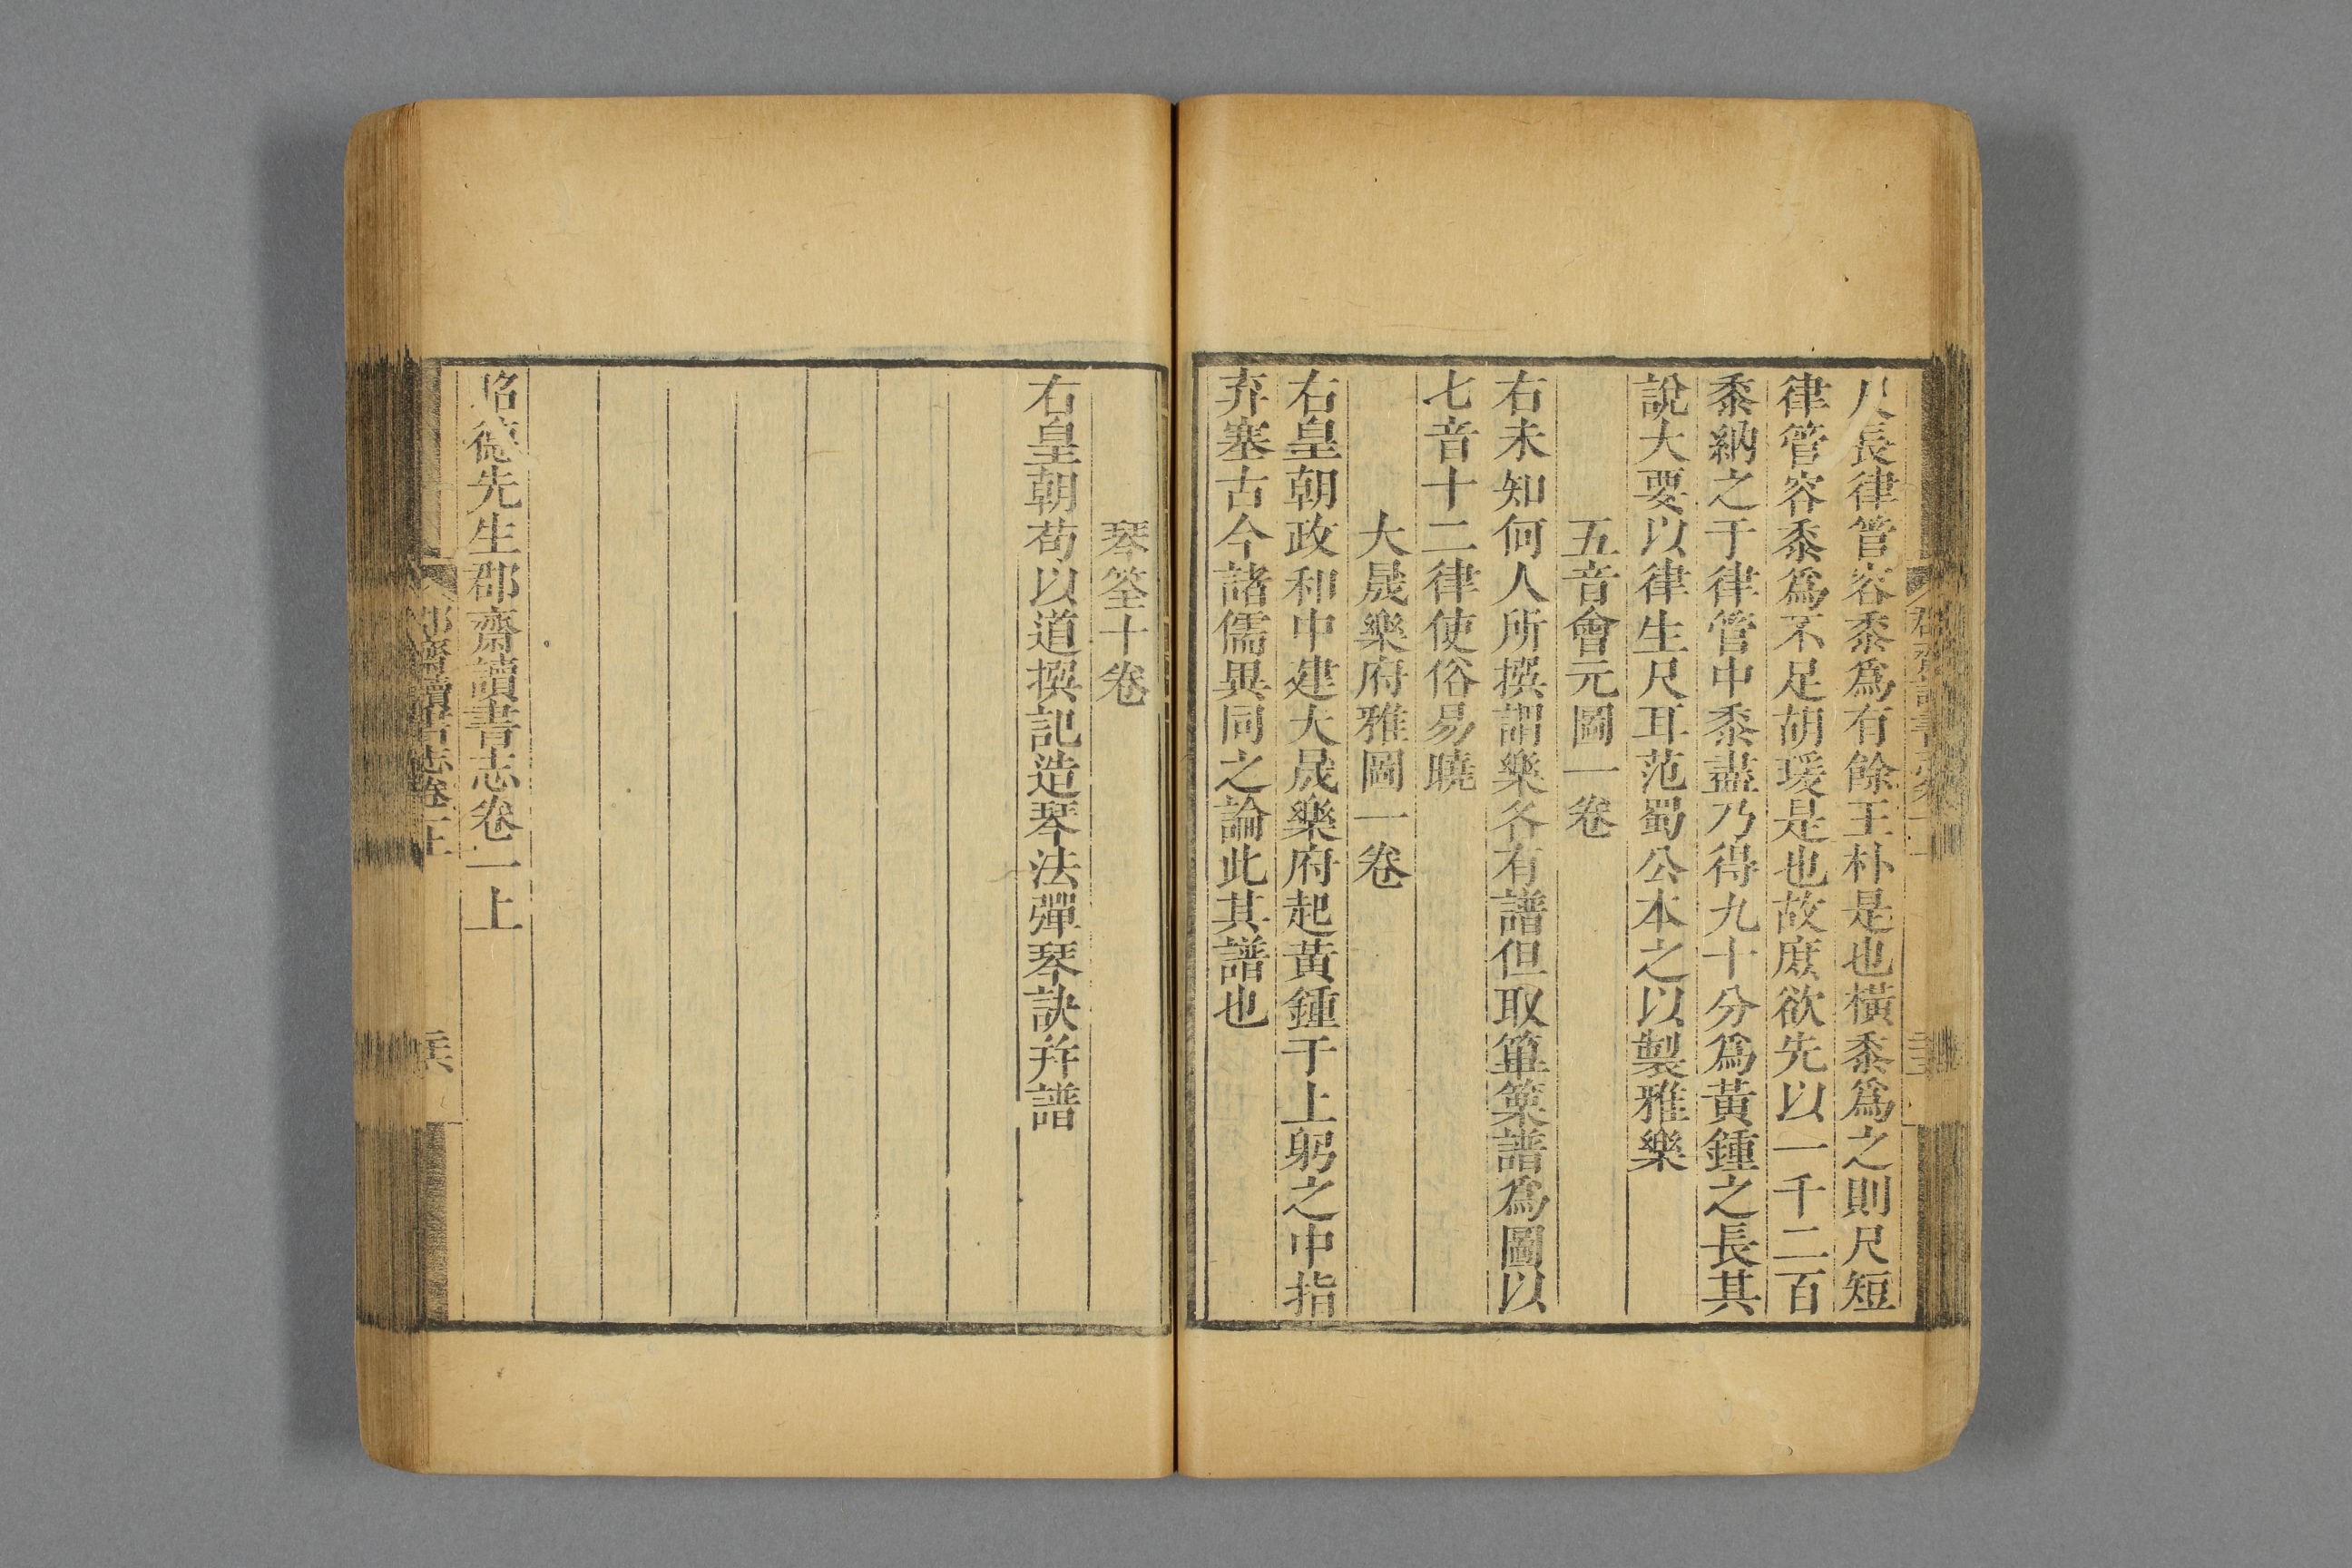 尺長律管容黍爲有餘王朴是也橫黍爲之則尺短
律管容黍爲不足胡瑗是也故庶欲先以一千二百
黍納之于律管中黍盡乃得九十分爲黃鍾之長其
說大要以律生尺耳范蜀公本之以製雅樂
五音會元圖一卷
右未知何人所撰謂樂各有譜但取篳篥譜爲圖以
七音十二律使俗易曉
大晟樂府雅圖一卷
右皇朝政和中建大晟樂府起黃鍾于上躬之中指
弃塞古今諸儒異同之論此其譜也
琴筌十卷
右皇朝荀以道撰記造琴法彈琴訣并譜
昭德先生郡齋讀書志卷一上
郡齋讀書志卷一上